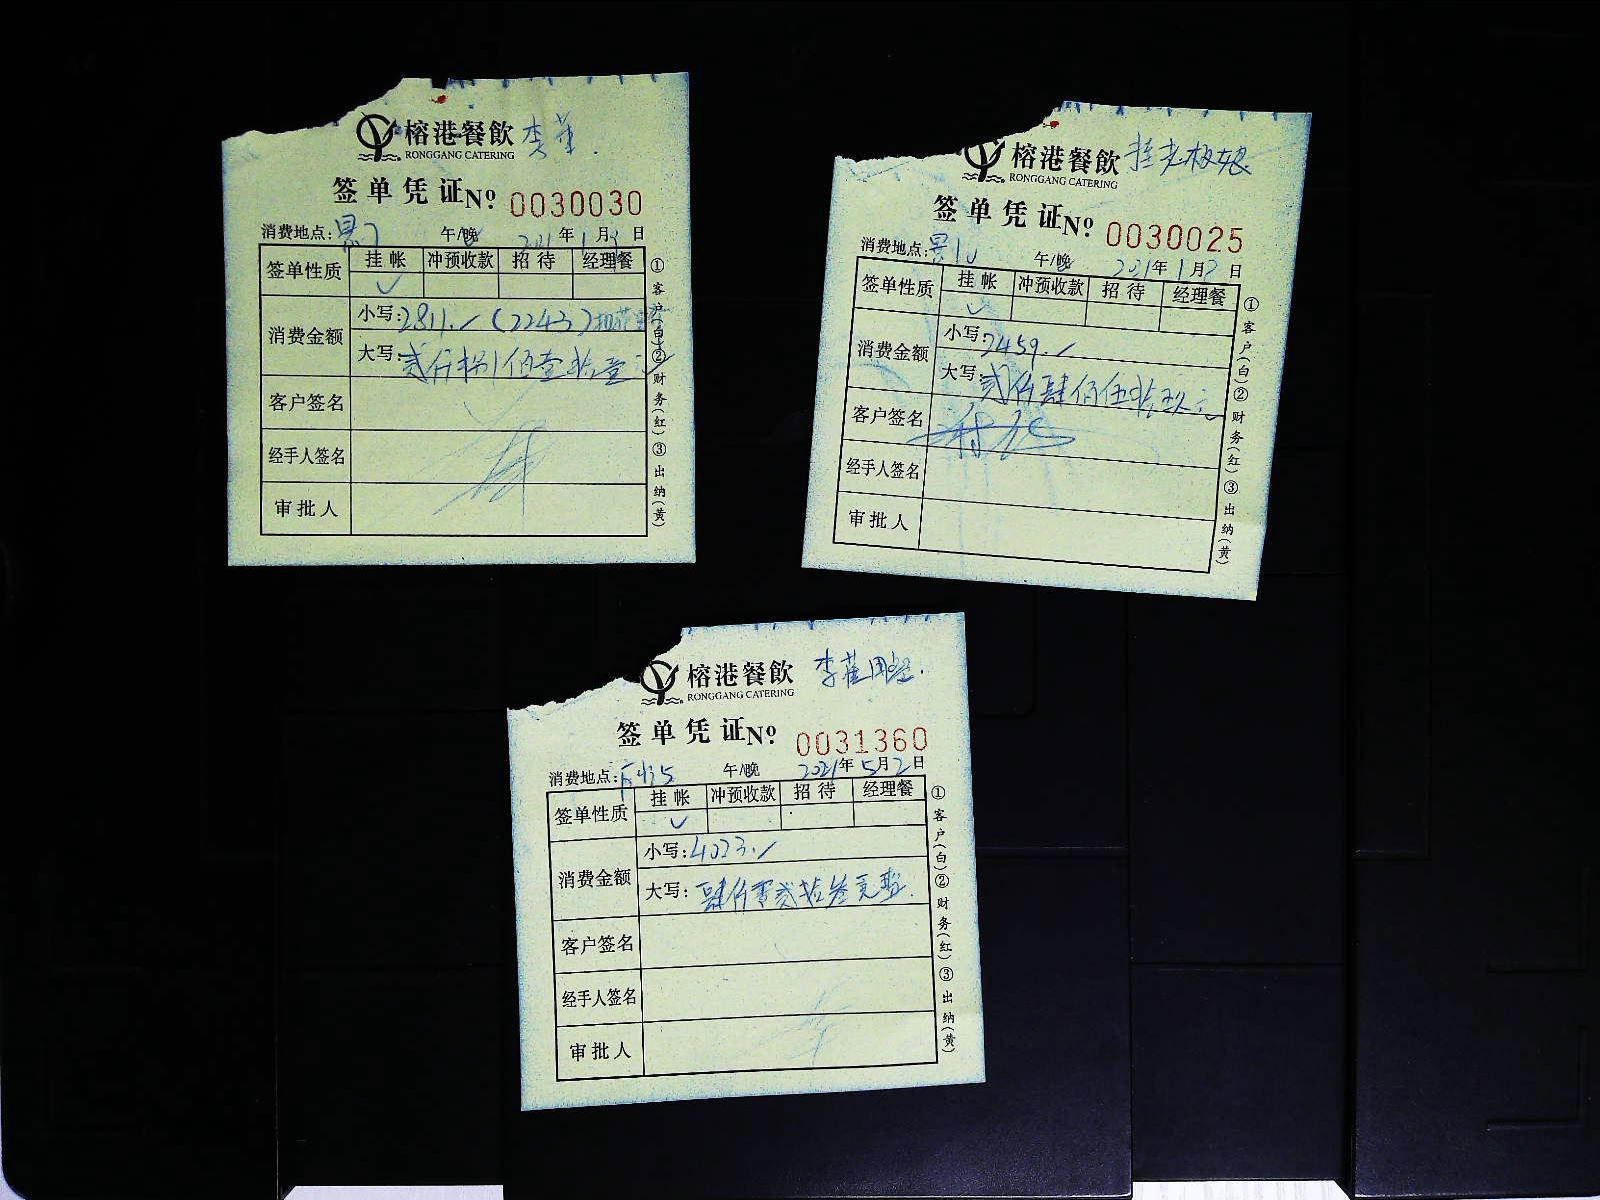 榕港餐飲 李董.
RONGGANG CATERING
签单凭证 № 0030030
消费地点: 午/晚 2021年1月 日
签单性质 挂帐 冲预收款 招待 经理餐
✓
消费金额 小写:2811.- (2243)
大写:贰仟捌佰壹拾壹元
客户签名
经手人签名
审批人
①客户(白)②财务(红)③出纳(黄)
榕港餐飲 挂老板娘
RONGGANG CATERING
签单凭证 № 0030025
消费地点: 午/晚 2021年1月2日
签单性质 挂帐 冲预收款 招待 经理餐
✓
消费金额 小写:2459.-
大写:贰仟肆佰伍拾玖元
客户签名
经手人签名
审批人
①客户(白)②财务(红)③出纳(黄)
榕港餐飲 李董用餐.
RONGGANG CATERING
签单凭证 № 0031360
消费地点: 午/晚 2021年5月2日
签单性质 挂帐 冲预收款 招待 经理餐
✓
消费金额 小写:4023.-
大写:肆仟零贰拾叁元整.
客户签名
经手人签名
审批人
①客户(白)②财务(红)③出纳(黄)